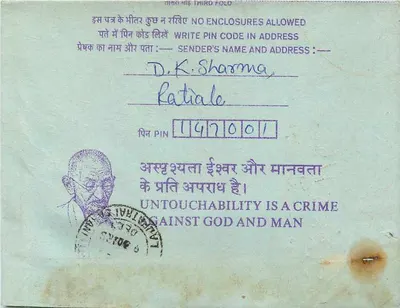 THIRD FOLD
इस पत्र के भीतर कुछ न रखिए NO ENCLOSURES ALLOWED
पते में पिन कोड लिखें WRITE PIN CODE IN ADDRESS
प्रेषक का नाम और पता :— SENDER'S NAME AND ADDRESS :—
D. K. Sharma,
Ratiale
पिन PIN 147001
अस्पृश्यता ईश्वर और मानवता
के प्रति अपराध है।
UNTOUCHABILITY IS A CRIME
AGAINST GOD AND MAN